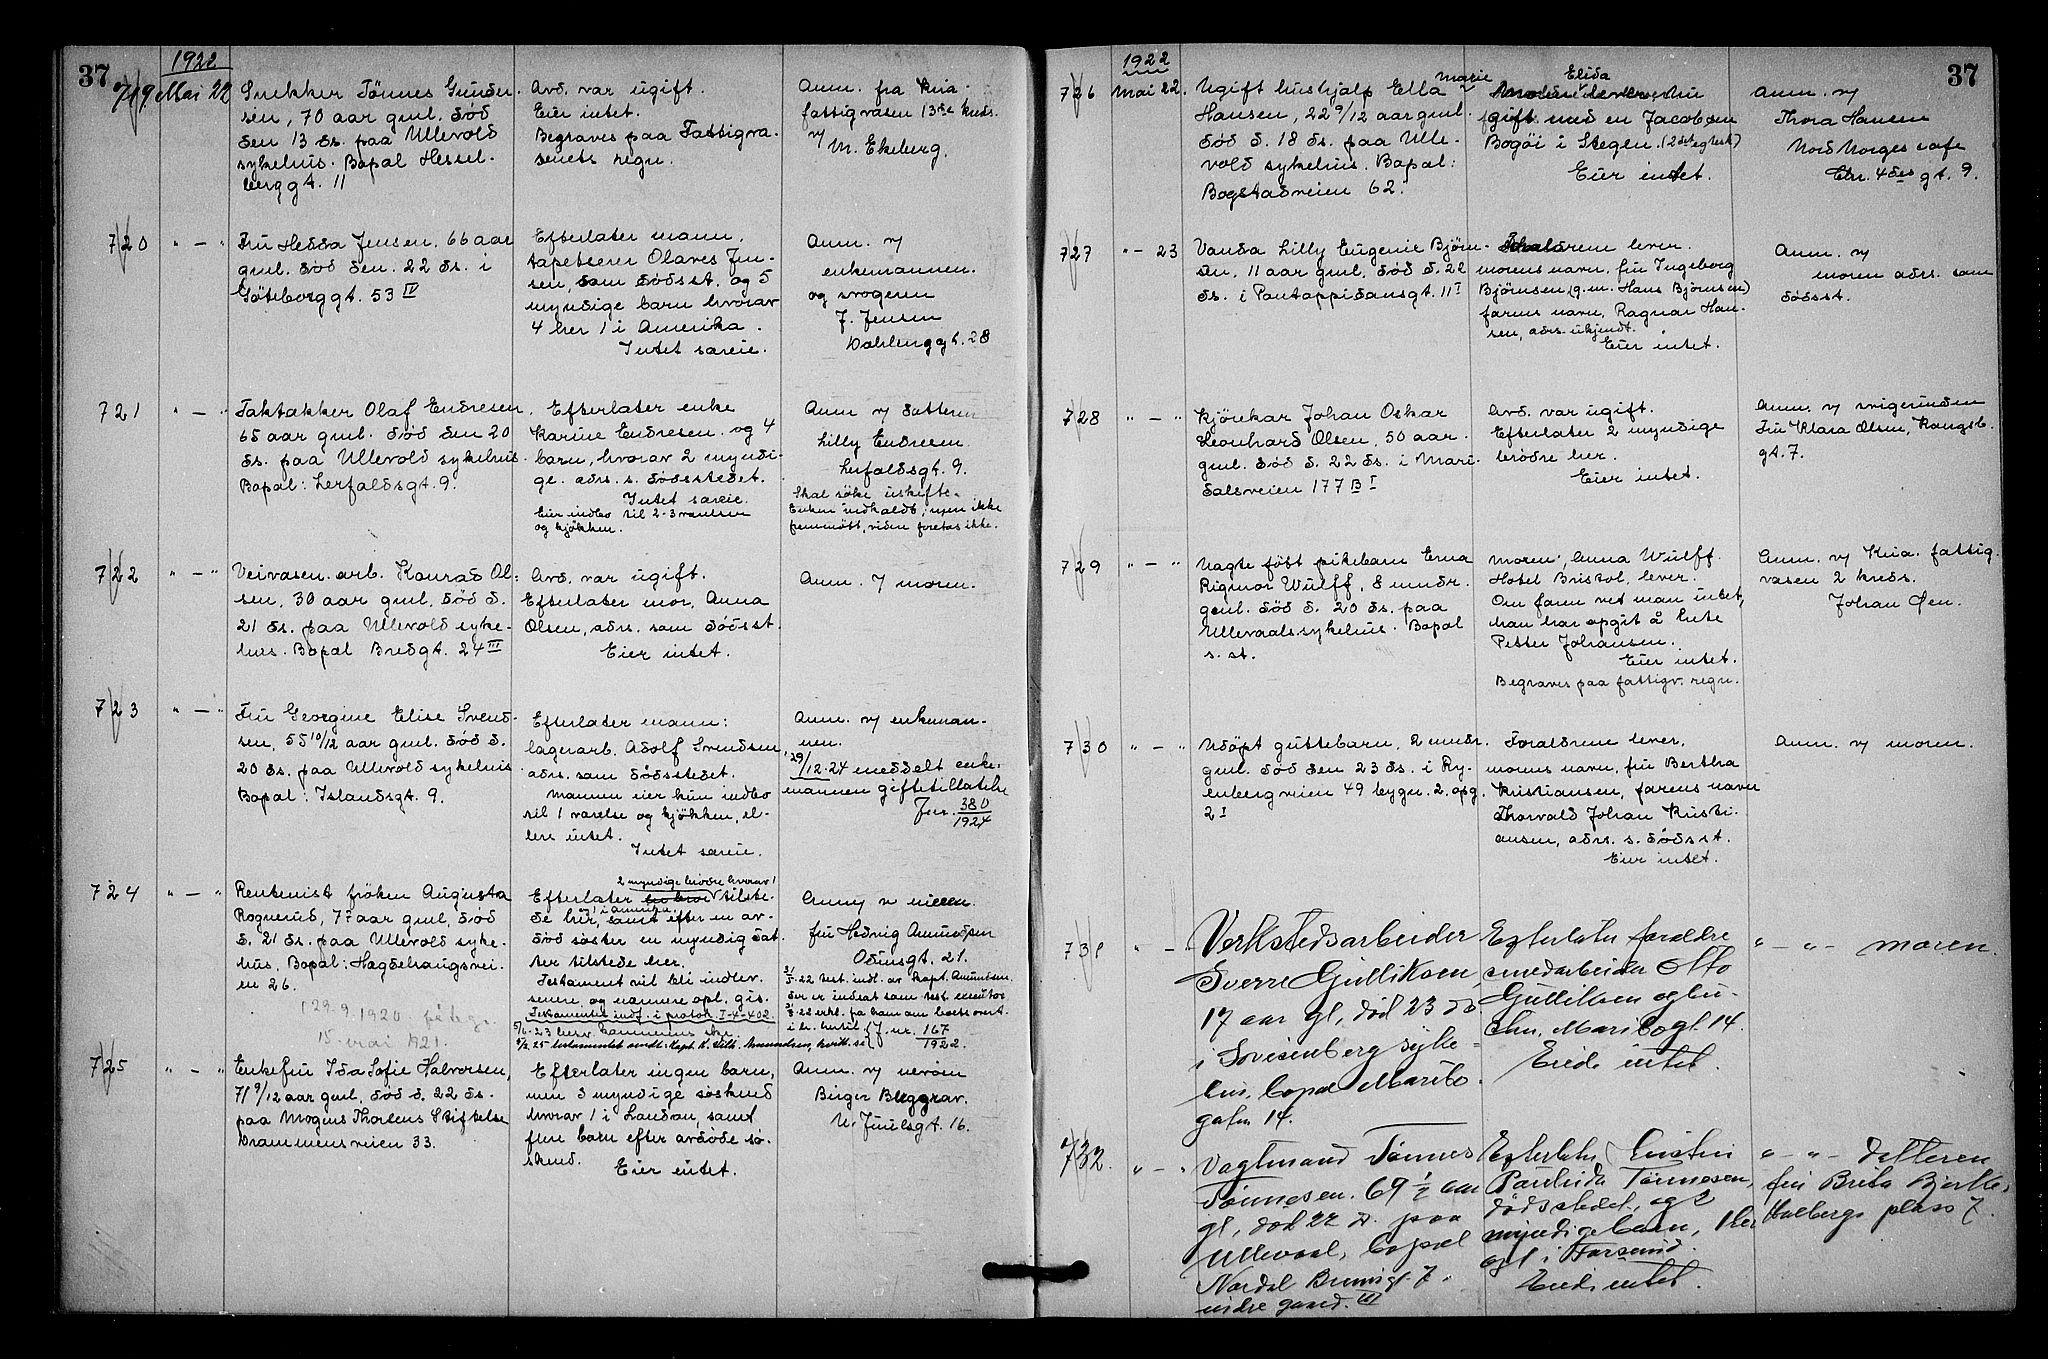 37
1922
719 Mai 22
Snekker Tønnes Gunder-
sen, 70 aar gml. død
den 13 ds. paa Ullevold
sykehus. Bopæl Hessel-
berggt. 11
Avd. var ugift.
Eier intet.
Begraves paa Fattigvæ-
senets regn.
Anm. fra Kria-
fattigvæsen 13de kreds.
v/ M. Ekeberg.
720 " — "
Fru Hedda Jensen. 66 aar
gml. død den. 22 ds. i
Gøteborggt. 53 IV
Efterlater mann,
tapetserer Olaves Jen-
sen, som dødsst. og 5
myndige barn hvorav
4 her 1 i Amerika.
Intet særeie.
Anm. v/
enkemannen.
og svogeren
J. Jensen
Dahlenggt. 28
721 " — "
Taktækker Olaf Endresen
65 aar gml. død den 20
ds. paa Ullevold sykehus.
Bopæl: Lerfaldsgt. 9.
Efterlater enke
Karine Endresen. og 4
barn, hvorav 2 myndi-
ge. adrs. s. dødsstedet.
Intet særeie.
Eier indbo til 2-3 værelser
og kjøkken.
Anm v/ datteren
Lilly Endresen.
Lerfaldsgt. 9.
Skal søke uskifte.
Enken indkaldt, men ikke
fremmøtt, viden foretas ikke.
722 " — "
Veivæsen. arb. Konrad Ol-
sen, 30 aar gml. død d.
21 ds. paa Ullevold syke-
hus. Bopæl Bredgt. 24 III
Avd. var ugift.
Efterlater mor, Anna
Olsen, adrs. som dødsst.
Eier intet.
Anm. v/ moren.
723 " — "
Fru Georgine Elise Svend-
sen, 55 10/12 aar gml. død d.
20 ds. paa Ullevold sykehus
Bopæl: Islandsgt. 9.
Efterlater mann:
lagerarb. Adolf Svendsen,
adrs. som dødsstedet.
Mannen eier kun indbo
til 1 værelse og kjøkken, el-
lers intet.
Intet særeie.
Anm. v/ enkeman-
nen.
29/12-24 meddelt enke-
mannen giftetillatelse
Jnr. 380/1924
724 " — "
Rentenist frøken Augusta
Rognerud, 77 aar gml. død
d. 21 ds. paa Ullevold syke-
hus, Bopæl: Hægdehaugsvei-
en 26.
29.9.1920.
15. mai 1921.
2 myndige brødre hvorav 1
Efterlater tilste-
de her, og 1 i Amerika, samt efter en av-
død søster en myndig dat-
ter tilstede her.
Testament vil bli indlev.
senere og nærmere opl. gis.
Testamentet indf. i protok. I-4-402.
Anm v niesen
fru Hedvig Amundsen
Odinsgt. 21.
Jnr. 167/1922.
725 " — "
Enkefru Ida Sofie Halvorsen,
71 9/12 aar gml. død d. 22 ds.
paa Mogens Thorsens Stiftelse
Drammensveien 33.
Efterlater ingen barn,
men 3 myndige søskend
hvorav 1 i London, samt
flere barn efter avdøde sø-
skend.
Eier intet.
Anm. v/ nevøen
Birger Buggrav.
N. Juulsgt. 16.
37
1922
726 Mai 22.
Ugift hushjælp Ella Marie
Hansen, 22 9/12 aar gml.
død d. 18 ds. paa Ulle-
vold sykehus. Bopæl:
Bogstadveien 62.
Elida
Moren lever, nu
gift med en Jacobsen
Bogöi i Stegen. (2det egtesk)
Eier intet.
Anm. v/
Thora Hansen
Nord Norges cafe
Chr. 4des gt. 9.
727 " — 23
Vanda Lilly Eugenie Bjørn-
sen, 11 aar gml. død d. 22
ds. i Pantappidansgt. 11 I
Forældrene lever.
morens navn, fru Ingeborg
Bjørnsen (g.m. Hans Bjørnsen)
farens navn, Ragnar Han-
sen, adrs. ukjendt.
Eier intet.
Anm. v/
moren adrs. som
dødsst.
728 " — "
Kjørekar Johan Oskar
Leonhard Olsen, 50 aar.
gml. død d. 22 ds. i Mari-
dalsveien 177 B I
Avd. var ugift.
Efterlater 2 myndige
brødre her.
Eier intet.
Anm. v/ svigerinden
Fru Klara Olsen, Kongsb.
gt. 7.
729 " — "
Uægte født pikebarn Erna
Rigmor Wulff, 8 mndr.
gml. død d. 20 ds. paa
Ullevaalssykehus. Bopæl
s. st.
moren, Anna Wulff.
Hotel Bristol, lever.
Om faren vet man intet,
han har opgit å hete
Petter Johansen.
Eier intet.
Begraves paa fattigv. regn.
Anm. v/ Kria. fattig-
væsen 2 kreds.
Johan Øen.
730 " — "
Udøpt guttebarn, 2 mndr.
gml. død den 23 ds. i Ry-
enbergveien 49 bygn. 2. opg.
2 I
Forældrene lever,
morens navn, fru Bertha
Kristiansen, farens navn
Thorvald Johan Kristi-
ansen, adrs. s. dødsst.
Eier intet.
Anm. v/ moren.
731 " — "
Verkstedsarbeider
Sverre Gulliksen,
17 aar gl, død 23 ds
i Lovisenberg syke-
hus, bopæl Maribo-
gaten 14.
Efterlater forældre
smedarbeider Otto
Gulliksen og hu-
stru, Maribogt 14.
Eiede intet.
" — " — moren.
732. " — "
Vagtmand Tønnes
Tønnesen. 69 1/2 aar
gl, død 22 ds. paa
Ullevaal, bopæl
Nordal Brunsgt. 7.
indre gaard. III
Efterlater hustru
Paulinda Tønnesen,
dødsstedet, og 2
myndige barn, 1 her
og 1 i Farsund.
Eiede intet.
" — " — datteren
fru Brita Bjerke,
Holbergs plass 7.